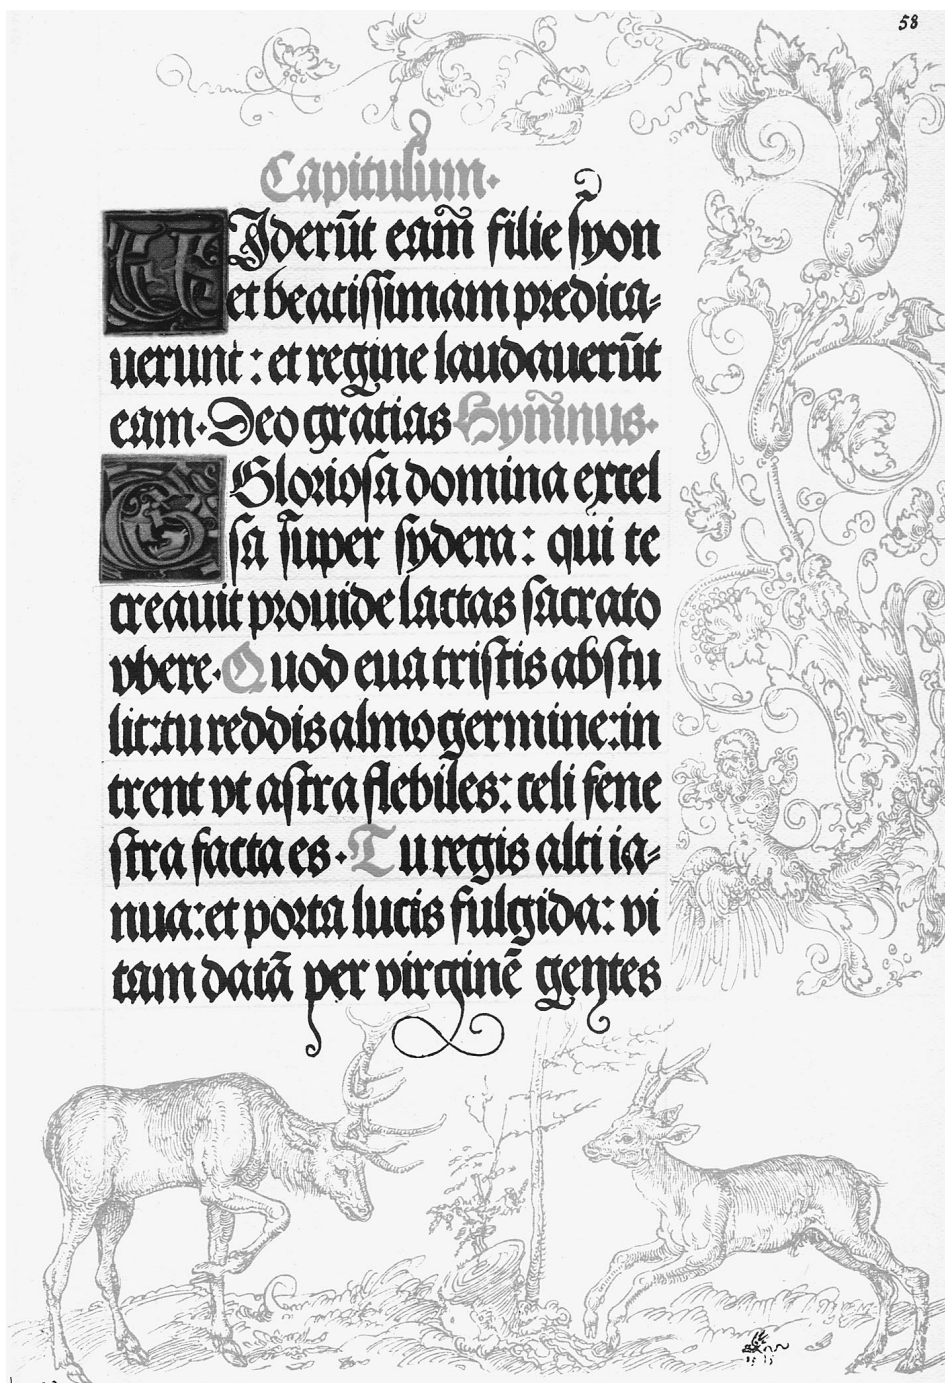 58
Capitulum.
VIderūt eam̄ filie syon
et beatissimam predica-
uerunt : et regine laudauerūt
eam. Deo gratias Hym̄nus.
O Gloriosa domina excel
sa super sydera : qui te
creauit prouide lactas sacrato
vbere. Quod eua tristis abstu
lit: tu reddis almo germine: in
trent vt astra flebiles: celi fene
stra facta es. Tu regis alti ia-
nua: et porta lucis fulgida: vi
tam datā per virginē gentes